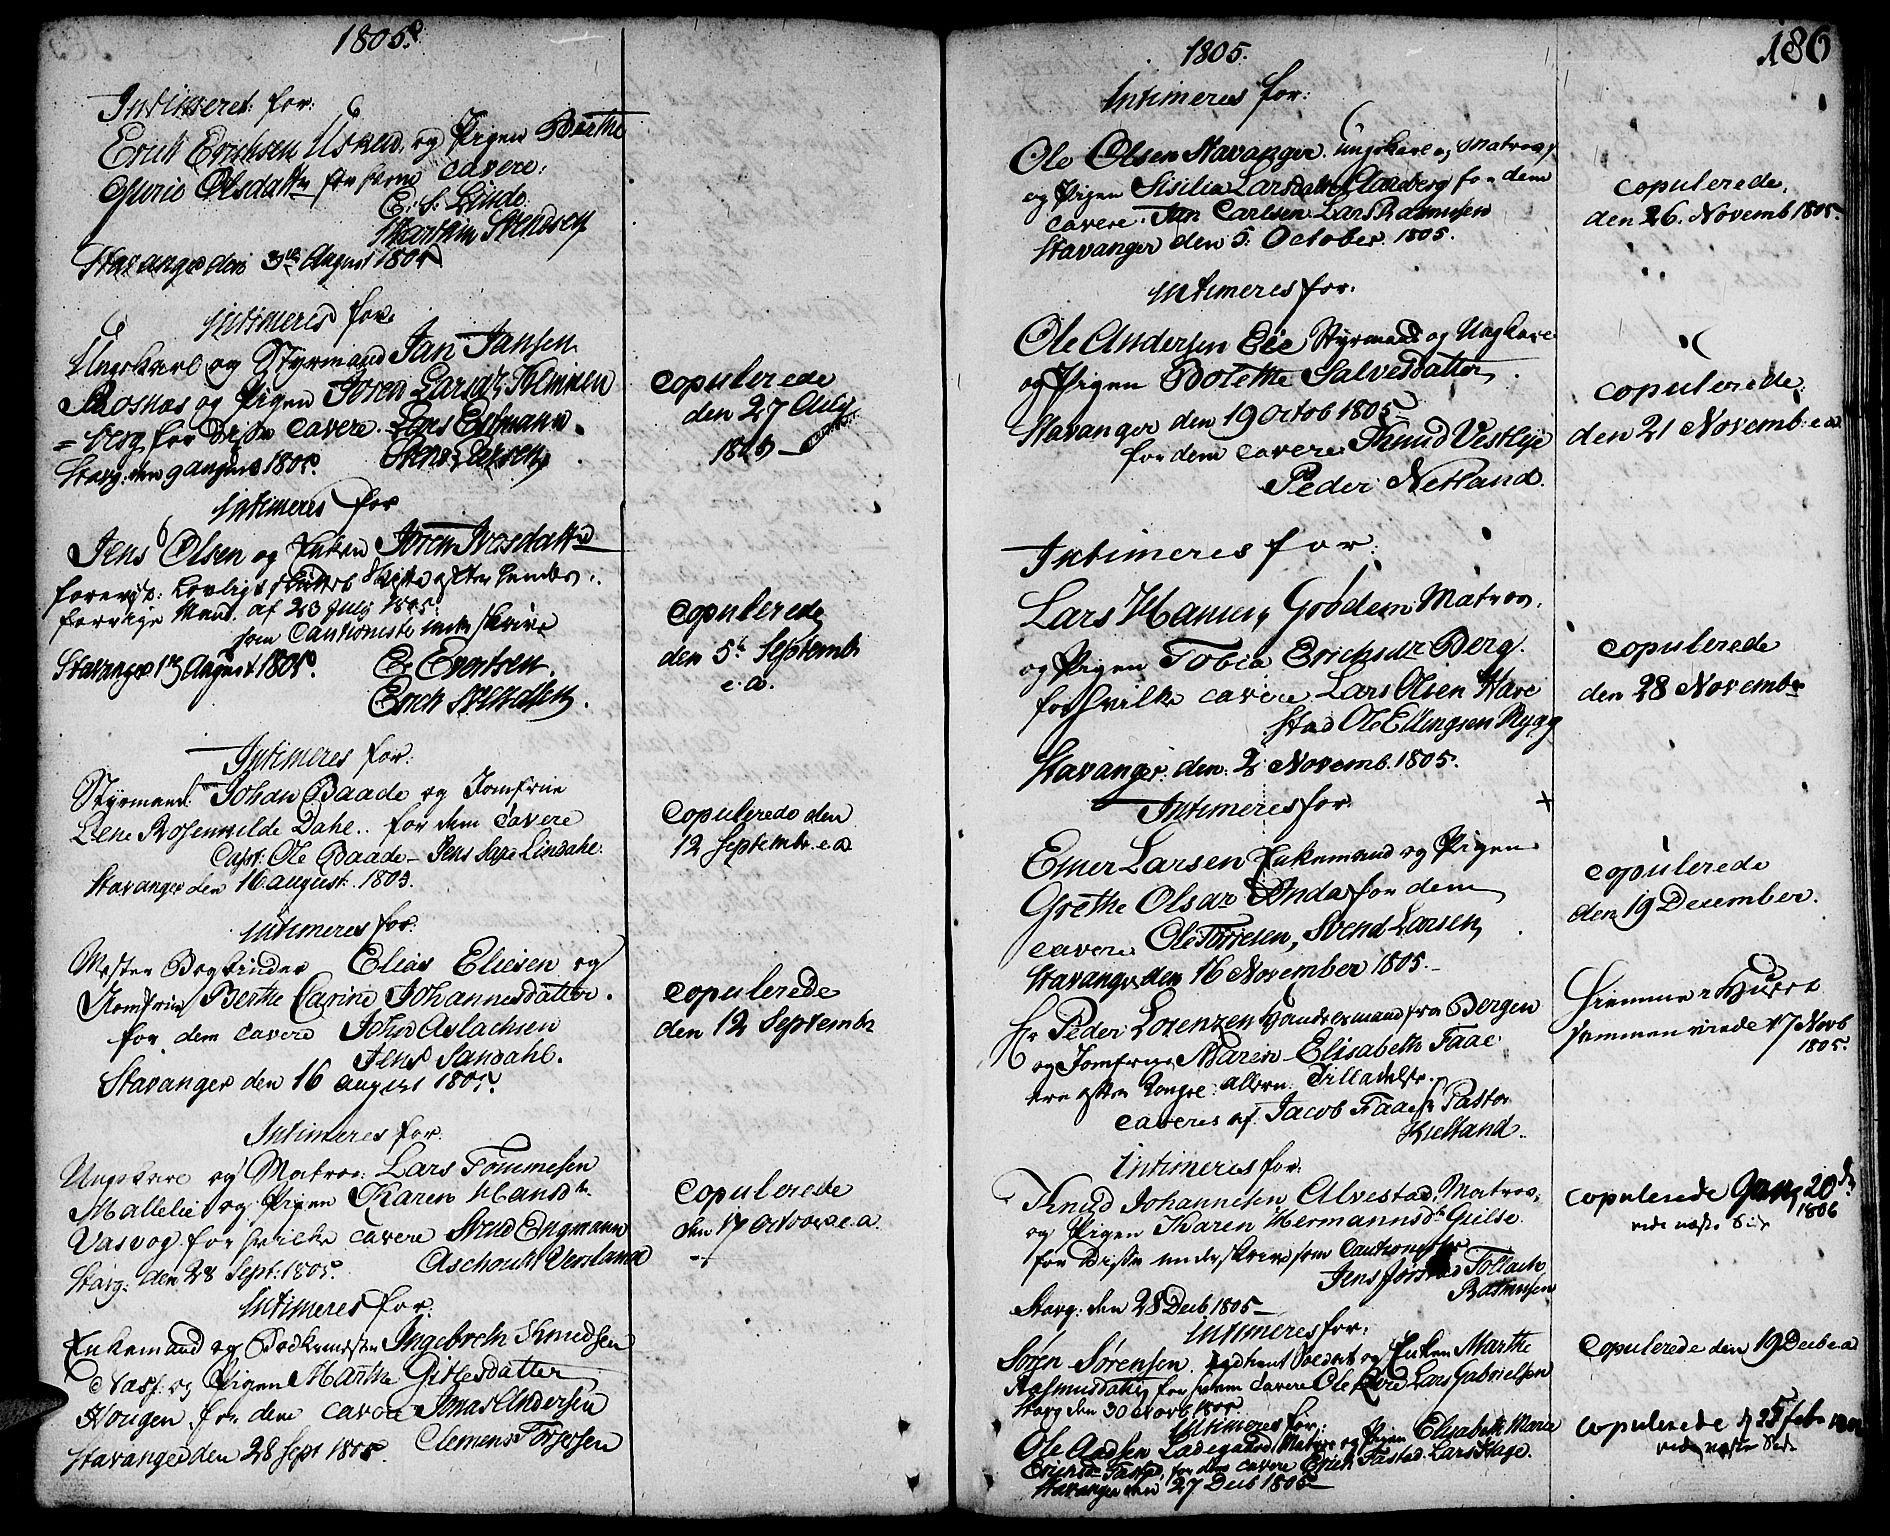 1805.
Intimeret for:
Erich Erichsen Usken, og Pigen Berthe
Gurie Olsdatter for hvem cavere:
E. S. Lunde
Martin Stendsen
Stavanger den 3die August 1805
Intimeres for
Ungekarl og Styrmand Jan Jansen
Rosnæs og Pigen Larsdr
berg, for Disse cavere Lars Estmann
Stavg: den 9 august 1805. Larsen
copulerede
den 27 Aug
Intimeres for
Jens Olsen og Enken Iversdatter
forevist: Lovligt Skifte efter hendes
forrige Mand af 23 July 1805.
som Cautionister underskrive
Stavanger 17 August 1805. E. Evertsen
Erich Svendsen.
copulerede
den 5t Septembr
e.a.
Intimeres for:
Styrmand Johan Baade og Jomfrue
Lene Rosenvilde Dahl. for dem cavere
Capt: Ole Baade - Jens Lindahl.
Stavanger den 16 august 1805.
copulerede den
12 Septembr. e.a
Intimeres for.
Mester Bogbinder Elias Eliesen og
Jomfrue Berthe Carine Johannesdatter.
for dem cavere John Aslachsen
Jens Sandahl.
Stavanger den 16 august 1805.
copulerede
den 12 Septembr
Intimeres for.
Ungekarl og Matros: Lars Tommesen
Mallelie og Pigen Karen Hansdtr.
Vasvog for hvilke cavere Svend Engmann
Stavg: den 28 Sept: 1805. Versland
copulerede
den 17 October e.a.
Intimeres for.
Enkemand og Ingebreth Knudsen
Næss og Pigen Marthe Gitlesdatter
Hougen for dem cavere Jonas Andersen
Stavanger den 28 Sept 1805. Clemens Torgersen
186
1805.
Intimeres for:
Ole Olsen Stavanger. ungekarl og Matros
og Pigen Sisilia Larsdatter for dem
cavere: Jan Carlsen Lars Rasmusen
Stavanger den 5. October. 1805.
copulerede,
den 26. Novemb 1805.
Intimeres for.
Ole Andersen Eie Styrmand og Ungkarl
og Pigen Bolethe Salvesdatter
Stavanger den 19 Octob 1805
for dem cavere Knud Vestlye
Peder Netland.
copulerede
den 21 Novemb: e.a
Intimeres for.
Lars Hansen, Godem Matros.
og Pigen Tobia Erichsdr Berg.
for hvilke cavere Lars Olsen Have
stad Ole Ellingsen Rygg
Stavanger den: 2 Novemb. 1805.
copulerede
den 28 Novembr
Intimeres for. +
Einer Larsen Enkemand og Pigen
Grethe Olsdr Anda for dem
cavere Ole Torresen, Svend Larsen,
Stavanger den 16 November 1805.
copulerede
den 19 December.
Hr Peder Lorenzen Handelsmand fra Bergen
og Jomfrue Maren Elisabeth Faae
ere efter Kongel: allern. Tilladelse
caveres af Jacob Faae, Pastor
Kielland.
hiemme i Huset
sammenviede 17 Novb
1805.
Intimeres for:
Knud Johannesen Alvestad, Matros,
og Pigen Karen Hermannsdr Gilse
for Disse underskrive som Cautionister
Jens Jørstad Tollach
Rasmusen
Stavg: den 28 Decb 1805
copulerede Jan: 20de
1806
vide næste Side
Intimeres for:
Søren Sørensen. Soldat og Enken Marthe
Rasmusdatter for hvem cavere Ole Lars Gabrielsen
Stavg den 30 Novb. 1805.
copulerede den 19 Decb e.a
Intimeres for:
Ole Aadsen Ladegaard, Matros og Pigen Elisabeth Marie
Erichsdr Tastad, for dem cavere Erich Tastad. Lars Hage.
Stavanger den 27 Decb 1805
copulerede d 25 Febr
vide næste Side